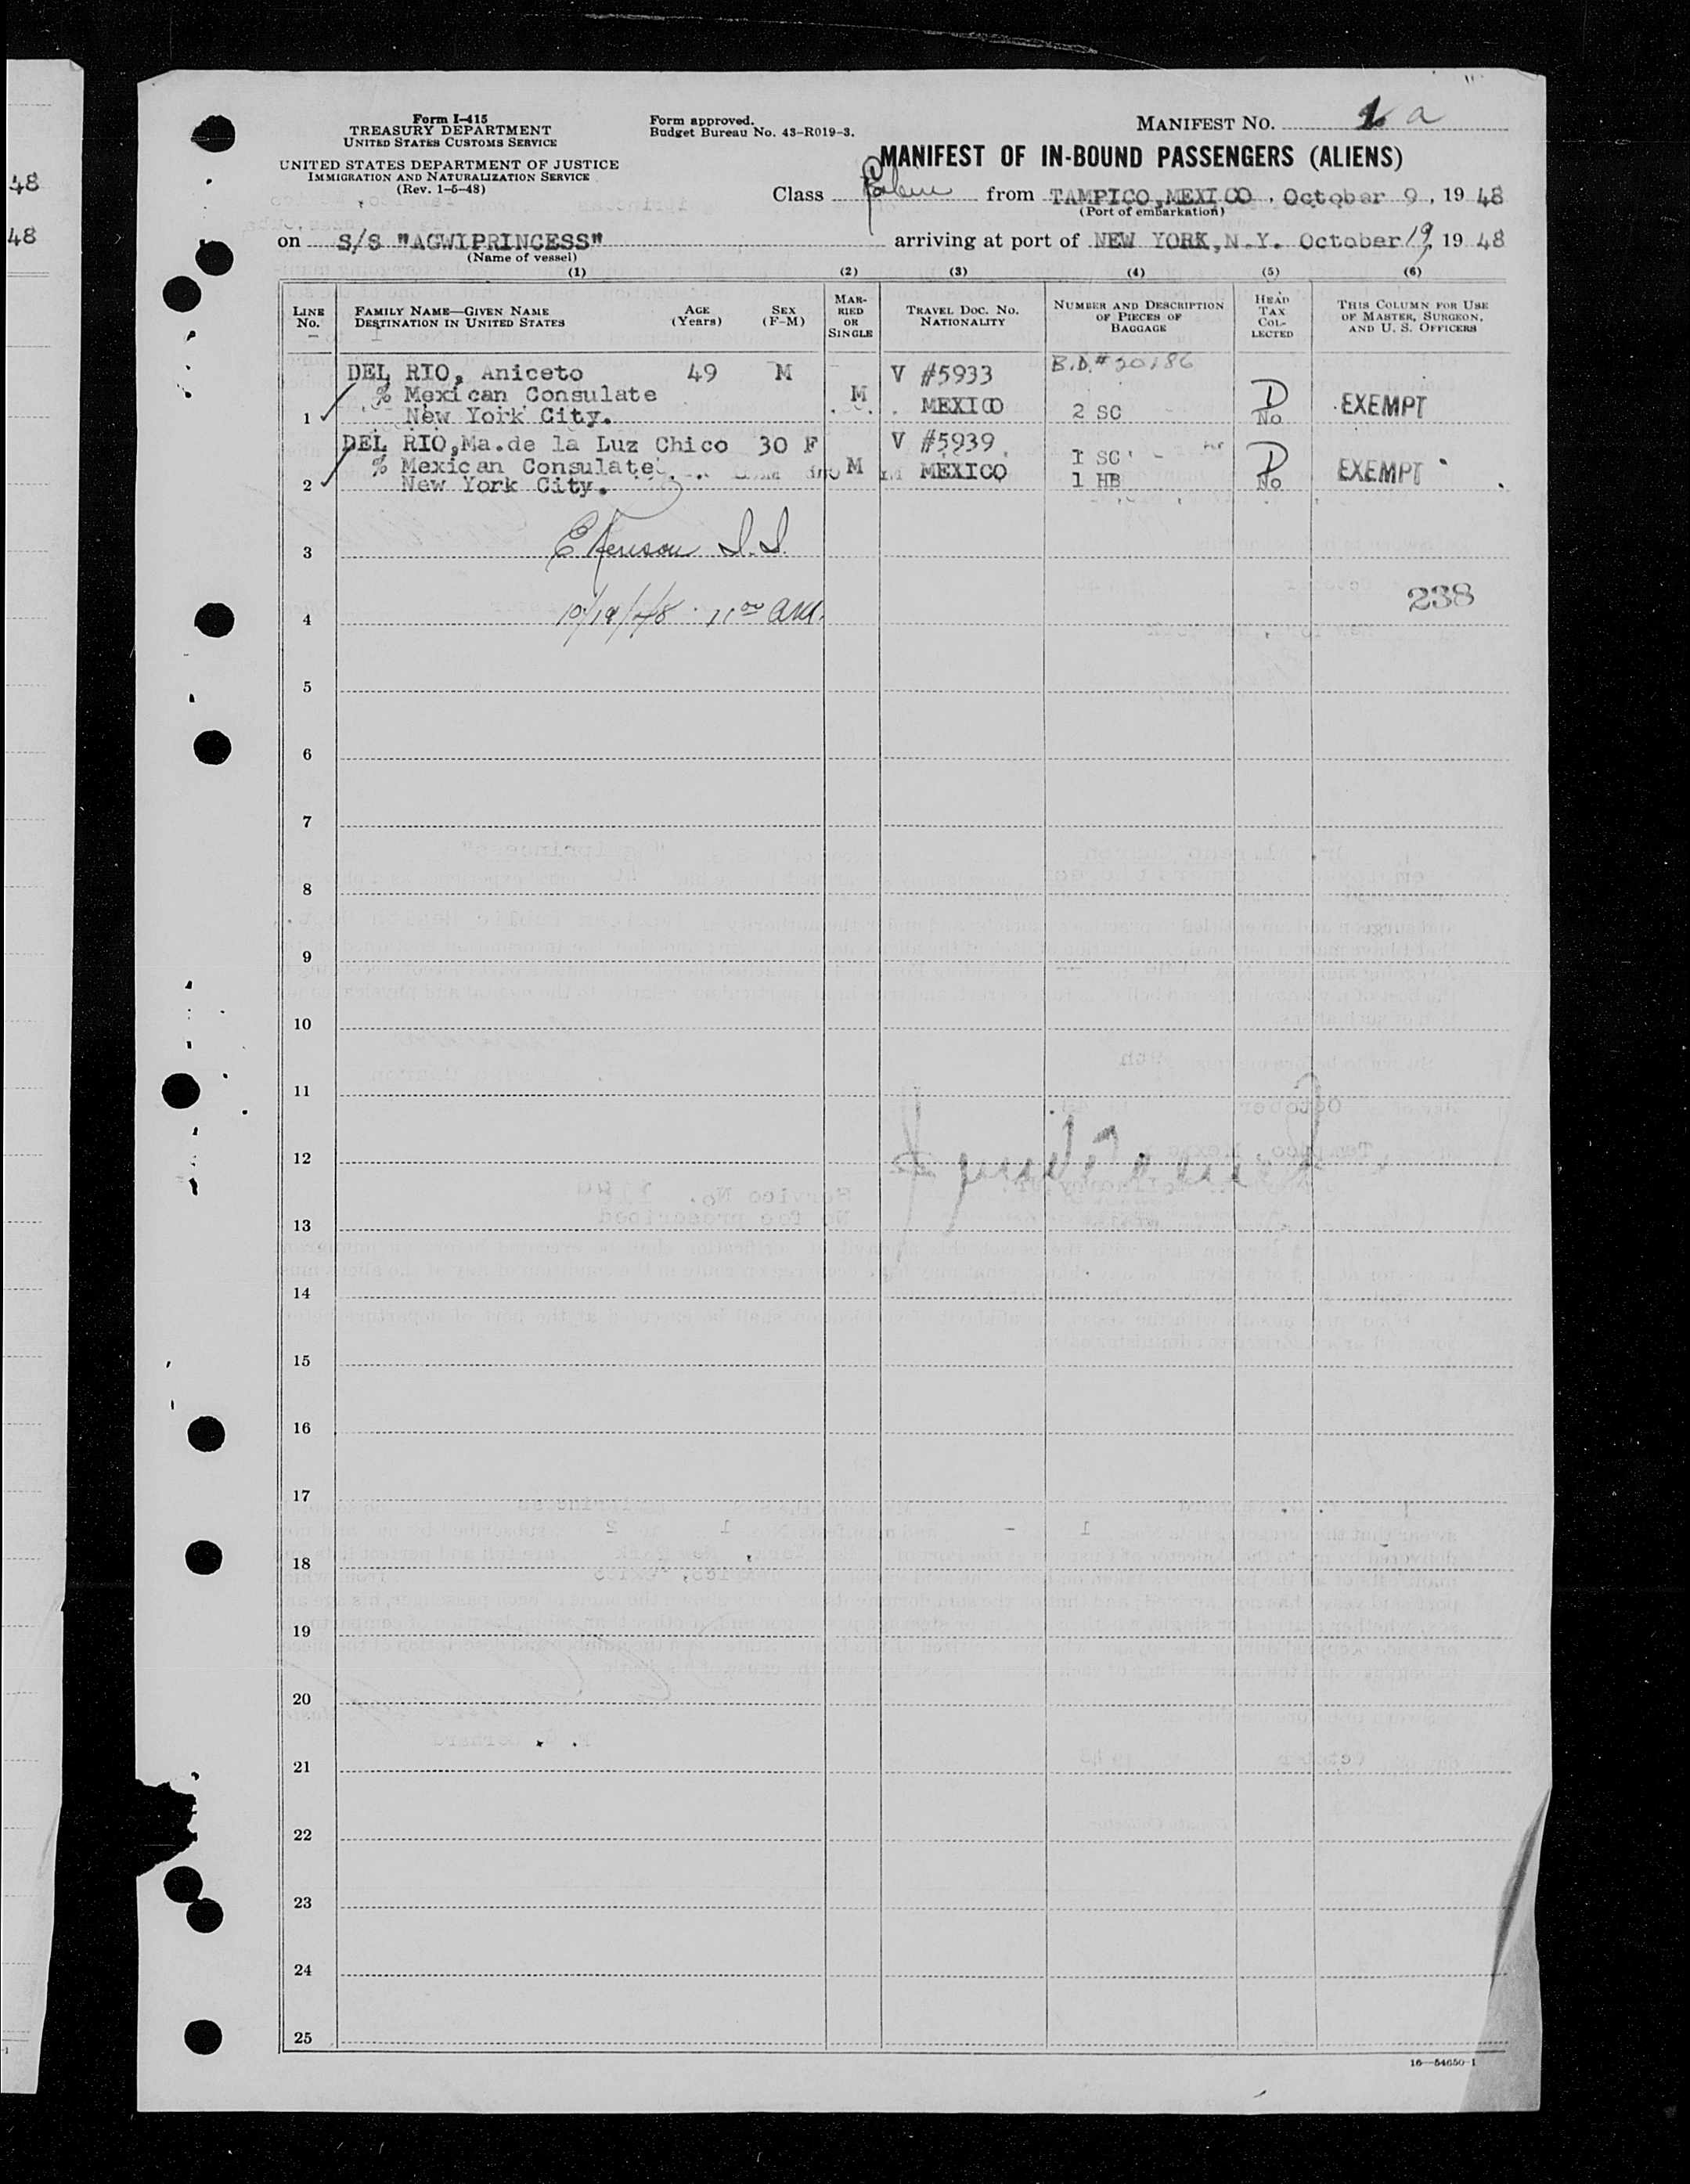 48
48
Form I-415
TREASURY DEPARTMENT
UNITED STATES CUSTOMS SERVICE
UNITED STATES DEPARTMENT OF JUSTICE
IMMIGRATION AND NATURALIZATION SERVICE
(Rev. 1-5-48)
Form approved.
Budget Bureau No. 43-R019-3.
MANIFEST NO. a
MANIFEST OF IN-BOUND PASSENGERS (ALIENS)
Class from TAMPICO,MEXICO , October 9 , 19 48
(Port of embarkation)
on S/S "AGWIPRINCESS" arriving at port of NEW YORK,N.Y. October 19, 19 48
(Name of vessel)
(1) (2) (3) (4) (5) (6)
LINE No. FAMILY NAME—GIVEN NAME DESTINATION IN UNITED STATES AGE (Years) SEX (F-M) MARRIED OR SINGLE TRAVEL DOC. NO. NATIONALITY NUMBER AND DESCRIPTION OF PIECES OF BAGGAGE HEAD TAX COLLECTED THIS COLUMN FOR USE OF MASTER, SURGEON, AND U. S. OFFICERS
DEL RIO, Aniceto 49 M V #5933 B.D.# 20186
% Mexican Consulate M D
1 New York City. MEXICO 2 SC No EXEMPT
DEL RIO,Ma.de la Luz Chico 30 F V #5939
% Mexican Consulate M MEXICO 1 SC D EXEMPT
2 New York City. 1 HB No
3
10/19/48 11 00 AM.
4
238
5
6
7
8
9
10
11
12
13
14
15
16
17
18
19
20
21
22
23
24
25
16—54650-1